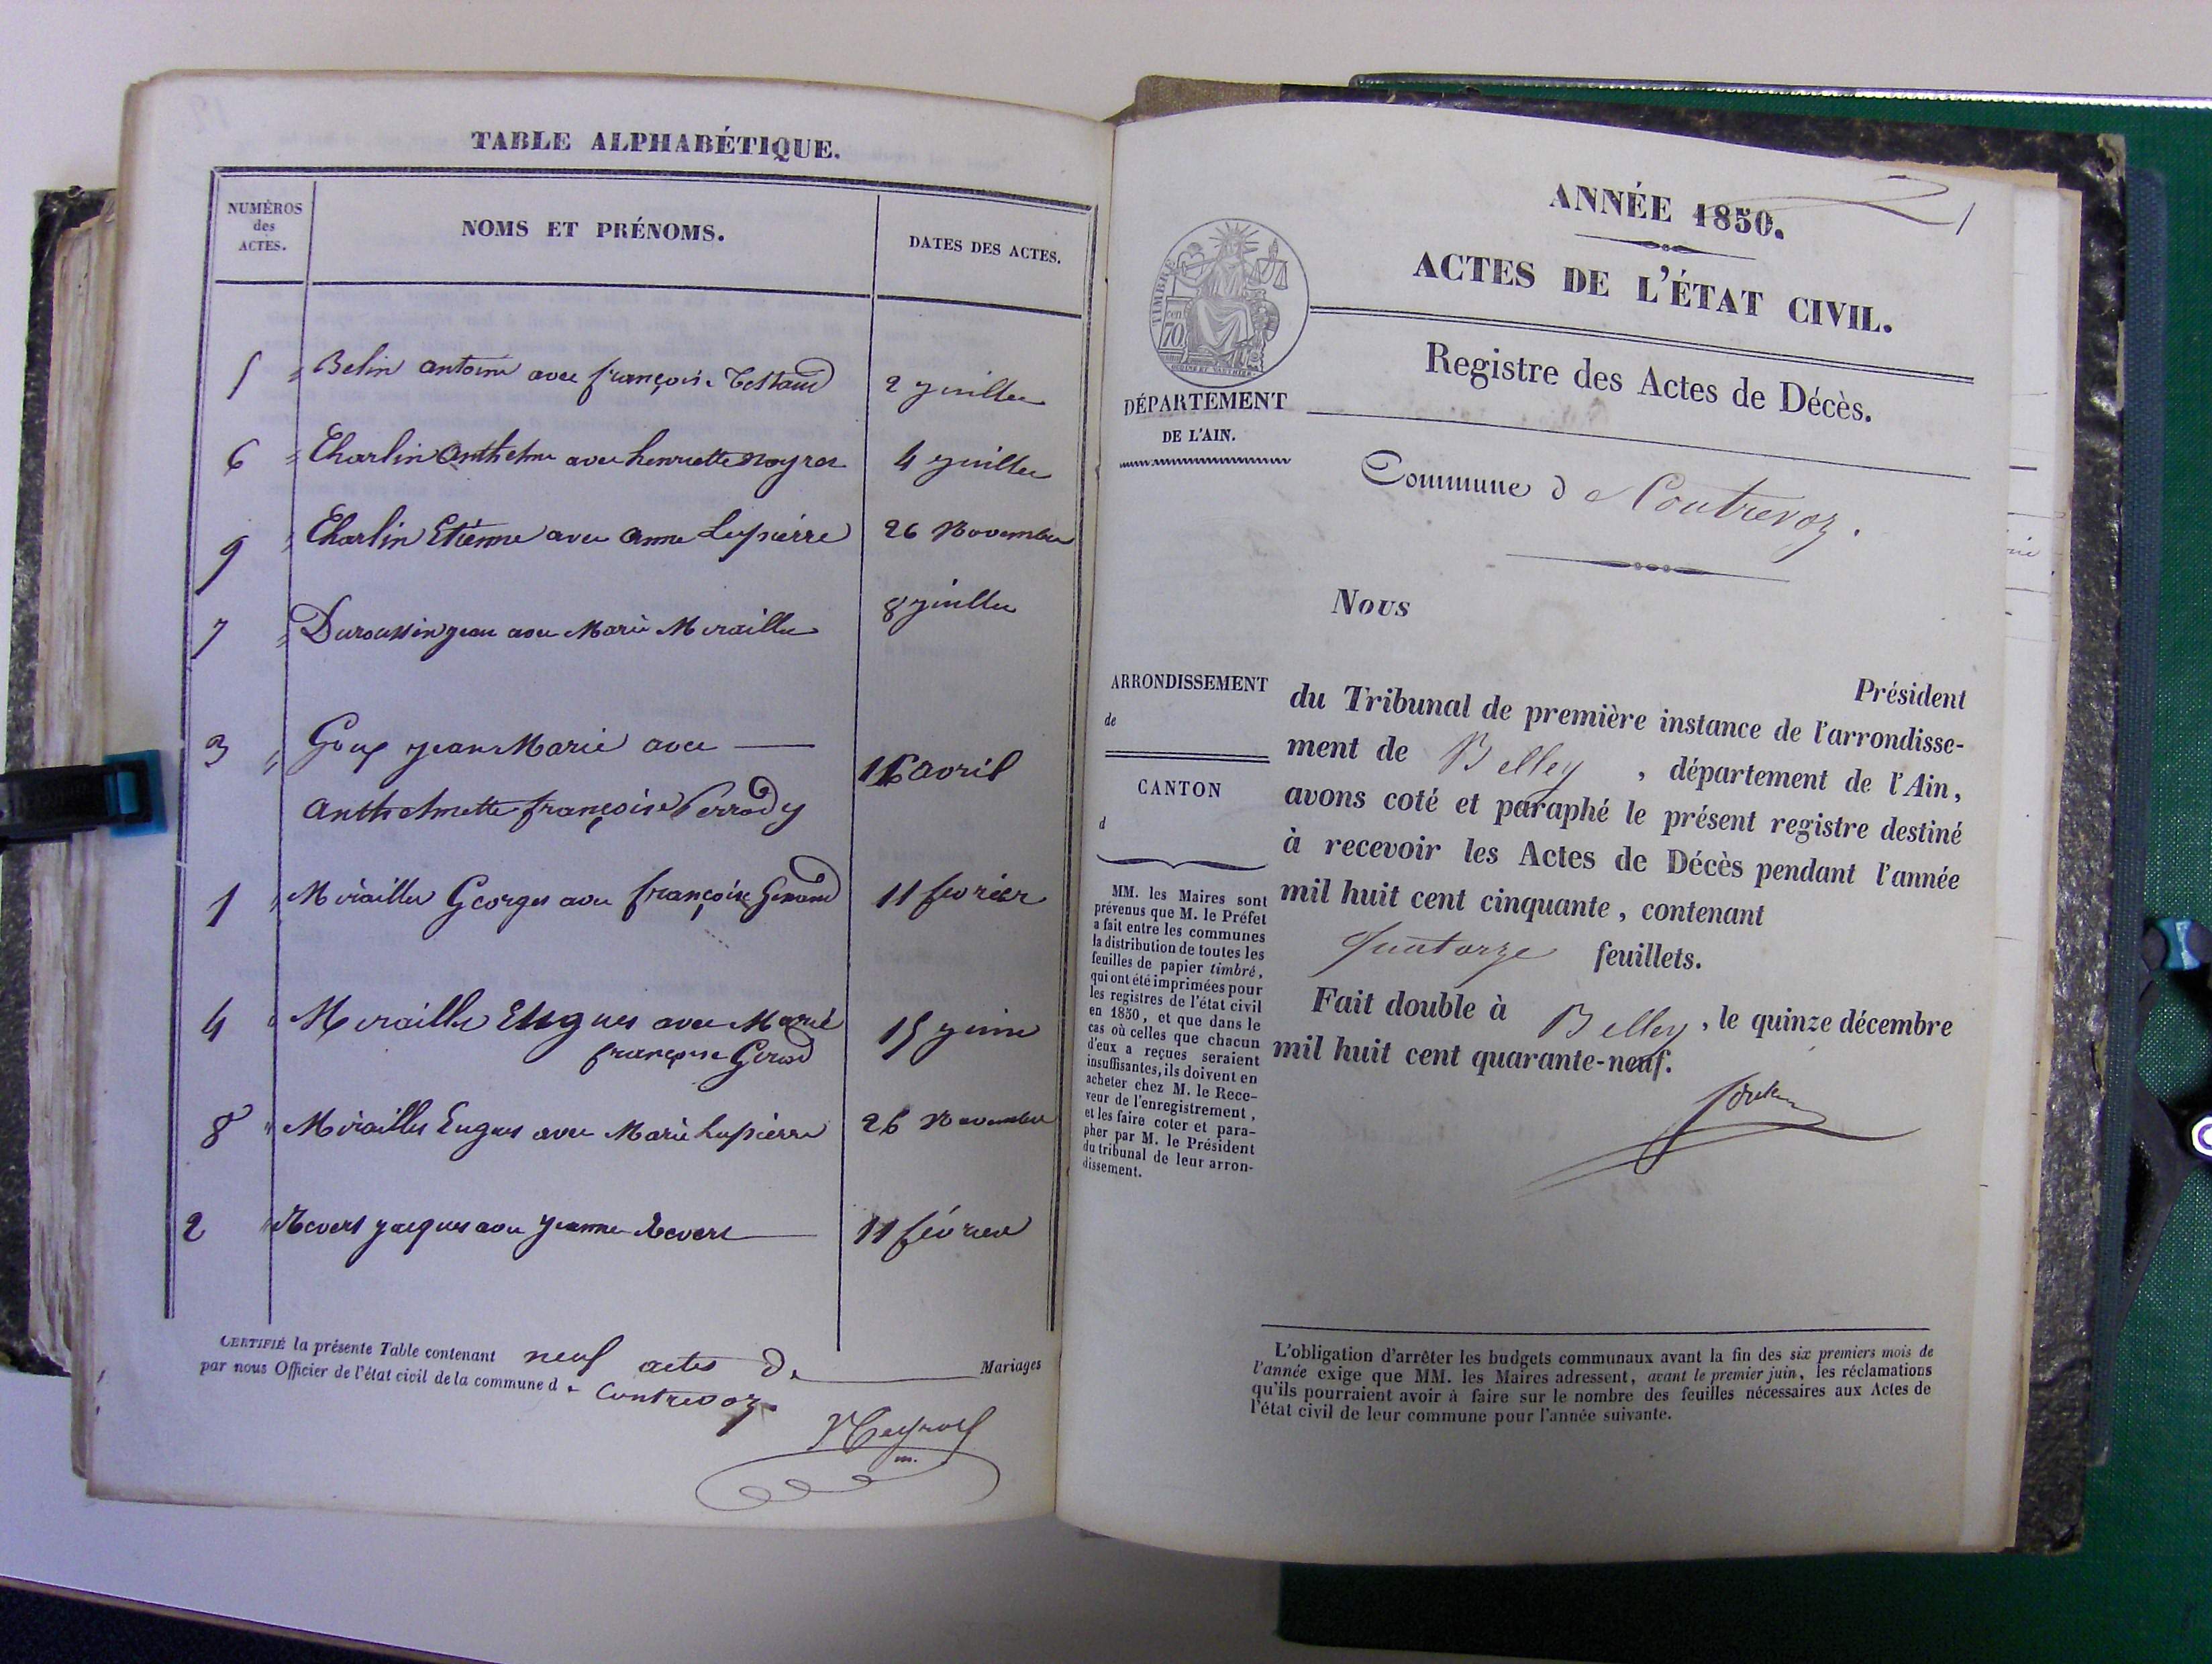 TABLE ALPHABÉTIQUE.
NUMÉROS
des
ACTES.
NOMS ET PRÉNOMS.
DATES DES ACTES.
5 " Belin antoine avec françoise 2 juillet
6 " Charlin anthelme avec henriette 4 juillet
9 " Charlin Etienne avec anne Lupierre 26 Novembre
7 " Duroussin jean avec Marie Miraillet 8 juillet
3 " Goux jean Marie avec
anthelmette françoise Perrody 16 avril
1 " Miraillet Georges avec françoise 11 fevrier
4 " Miraillet Eugues avec Marie 15 juin
françoise Girod
8 " Miraillet Eugues avec Marie Lupierre 26 Novembre
2 " Revert jacques avec jeanne Revert 11 février
CERTIFIÉ la présente Table contenant neuf actes de Mariages
par nous Officier de l'état civil de la commune de Contrevoz.
m.
ANNÉE 1850.
1
ACTES DE L'ÉTAT CIVIL.
Registre des Actes de Décès.
TIMBRE
70 cent
DÉPARTEMENT
DE L'AIN.
Commune de Contrevoz.
Nous
Président
ARRONDISSEMENT
de
CANTON
d
du Tribunal de première instance de l'arrondisse-
ment de Belley, département de l'Ain,
avons coté et paraphé le présent registre destiné
à recevoir les Actes de Décès pendant l'année
mil huit cent cinquante, contenant
quatorze feuillets.
Fait double à Belley, le quinze décembre
mil huit cent quarante-neuf.
MM. les Maires sont
prévenus que M. le Préfet
a fait entre les communes
la distribution de toutes les
feuilles de papier timbré,
qui ont été imprimées pour
les registres de l'état civil
en 1850, et que dans le
cas où celles que chacun
d'eux a reçues seraient
insuffisantes, ils doivent en
acheter chez M. le Rece-
veur de l'enregistrement,
et les faire coter et para-
pher par M. le Président
du tribunal de leur arron-
dissement.
L'obligation d'arrêter les budgets communaux avant la fin des six premiers mois de
l'année exige que MM. les Maires adressent, avant le premier juin, les réclamations
qu'ils pourraient avoir à faire sur le nombre des feuilles nécessaires aux Actes de
l'état civil de leur commune pour l'année suivante.